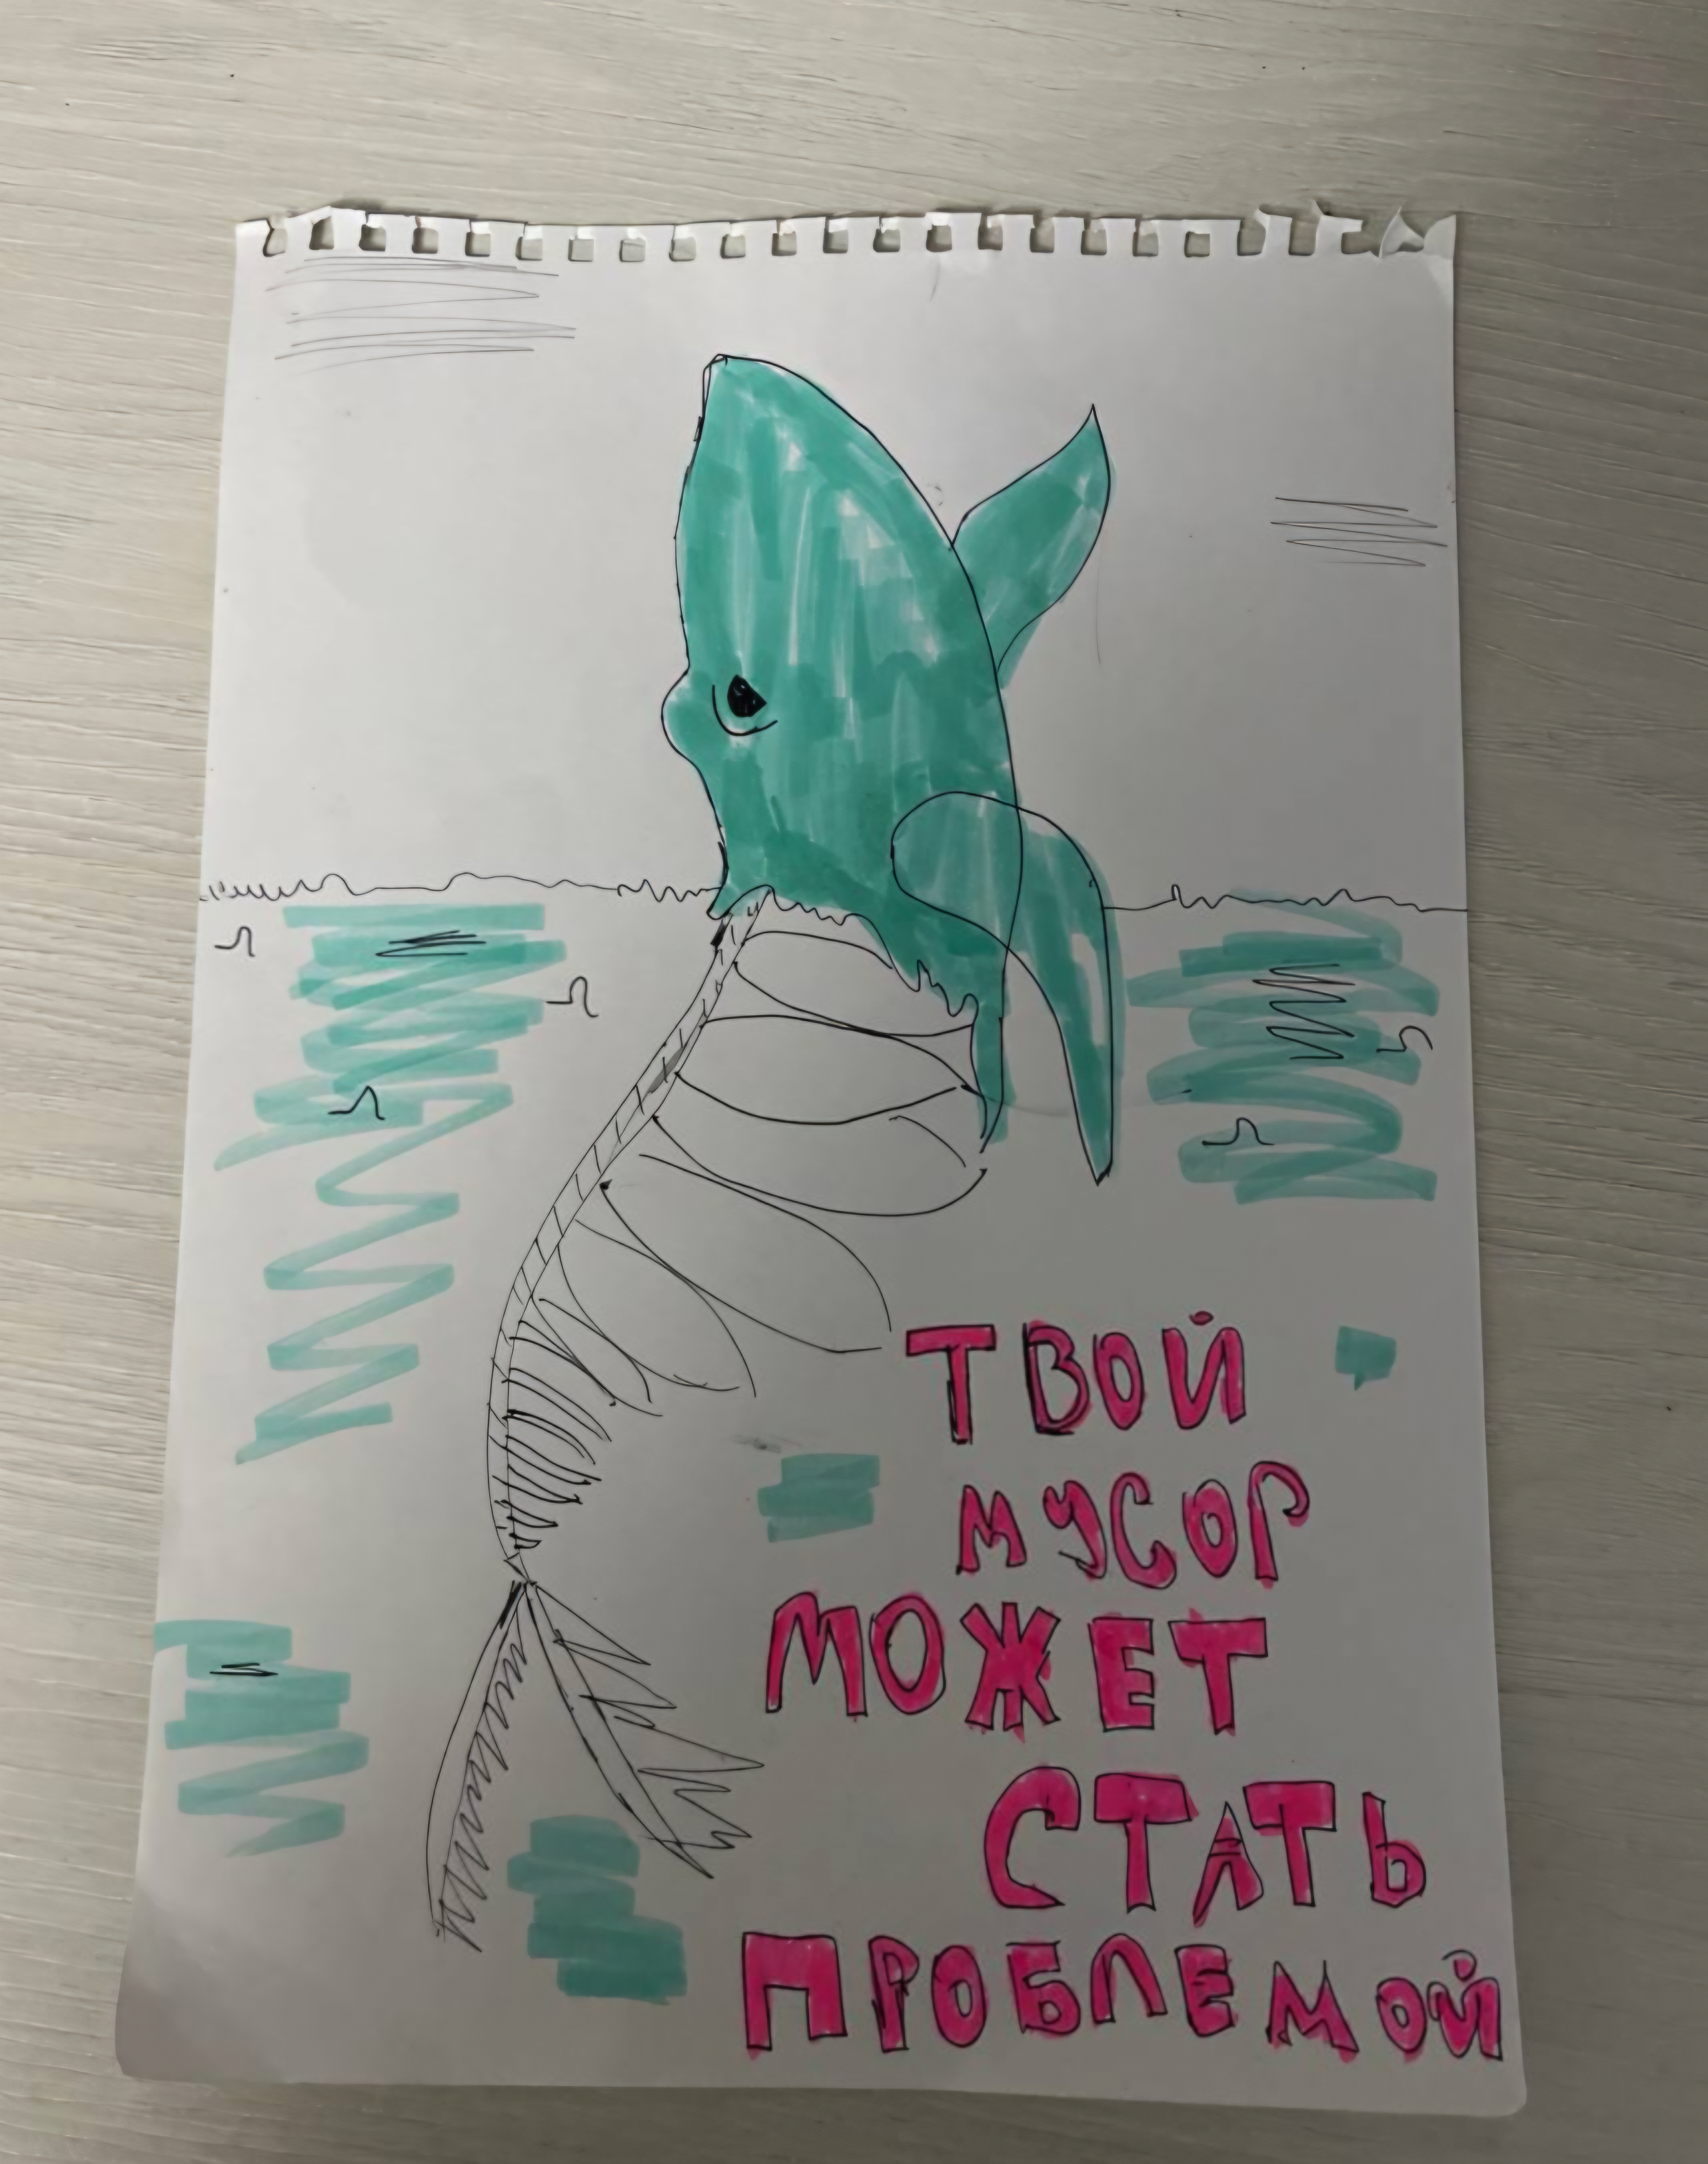 ТВОЙ
МУСОР
МОЖЕТ
СТАТЬ
ПРОБЛЕМОЙ